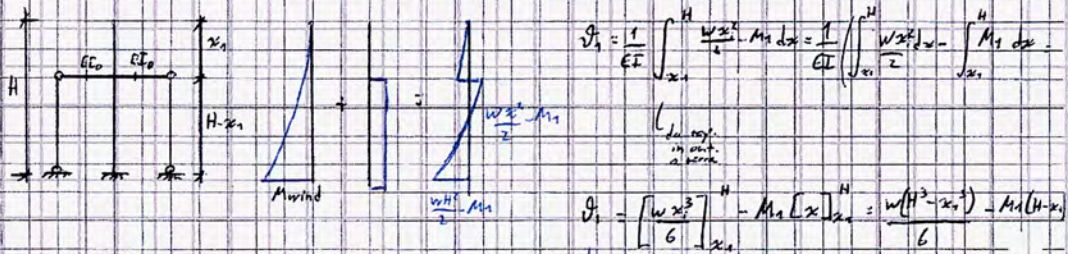 H
EI₀ EI₀
x₁
H-x₁
+
=
Mwind
wx²/2 - M₁
wH²/2 - M₁
ϑ₁ = 1/EI ∫_{x₁}^{H} wx²/2 - M₁ dx = 1/EI (∫_{x₁}^{H} wx²/2 dx - ∫_{x₁}^{H} M₁ dx =
ϑ₁ = [wx³/6]_{x₁}^{H} - M₁ [x]_{x₁}^{H} = w(H³-x₁³)/6 - M₁(H-x₁)